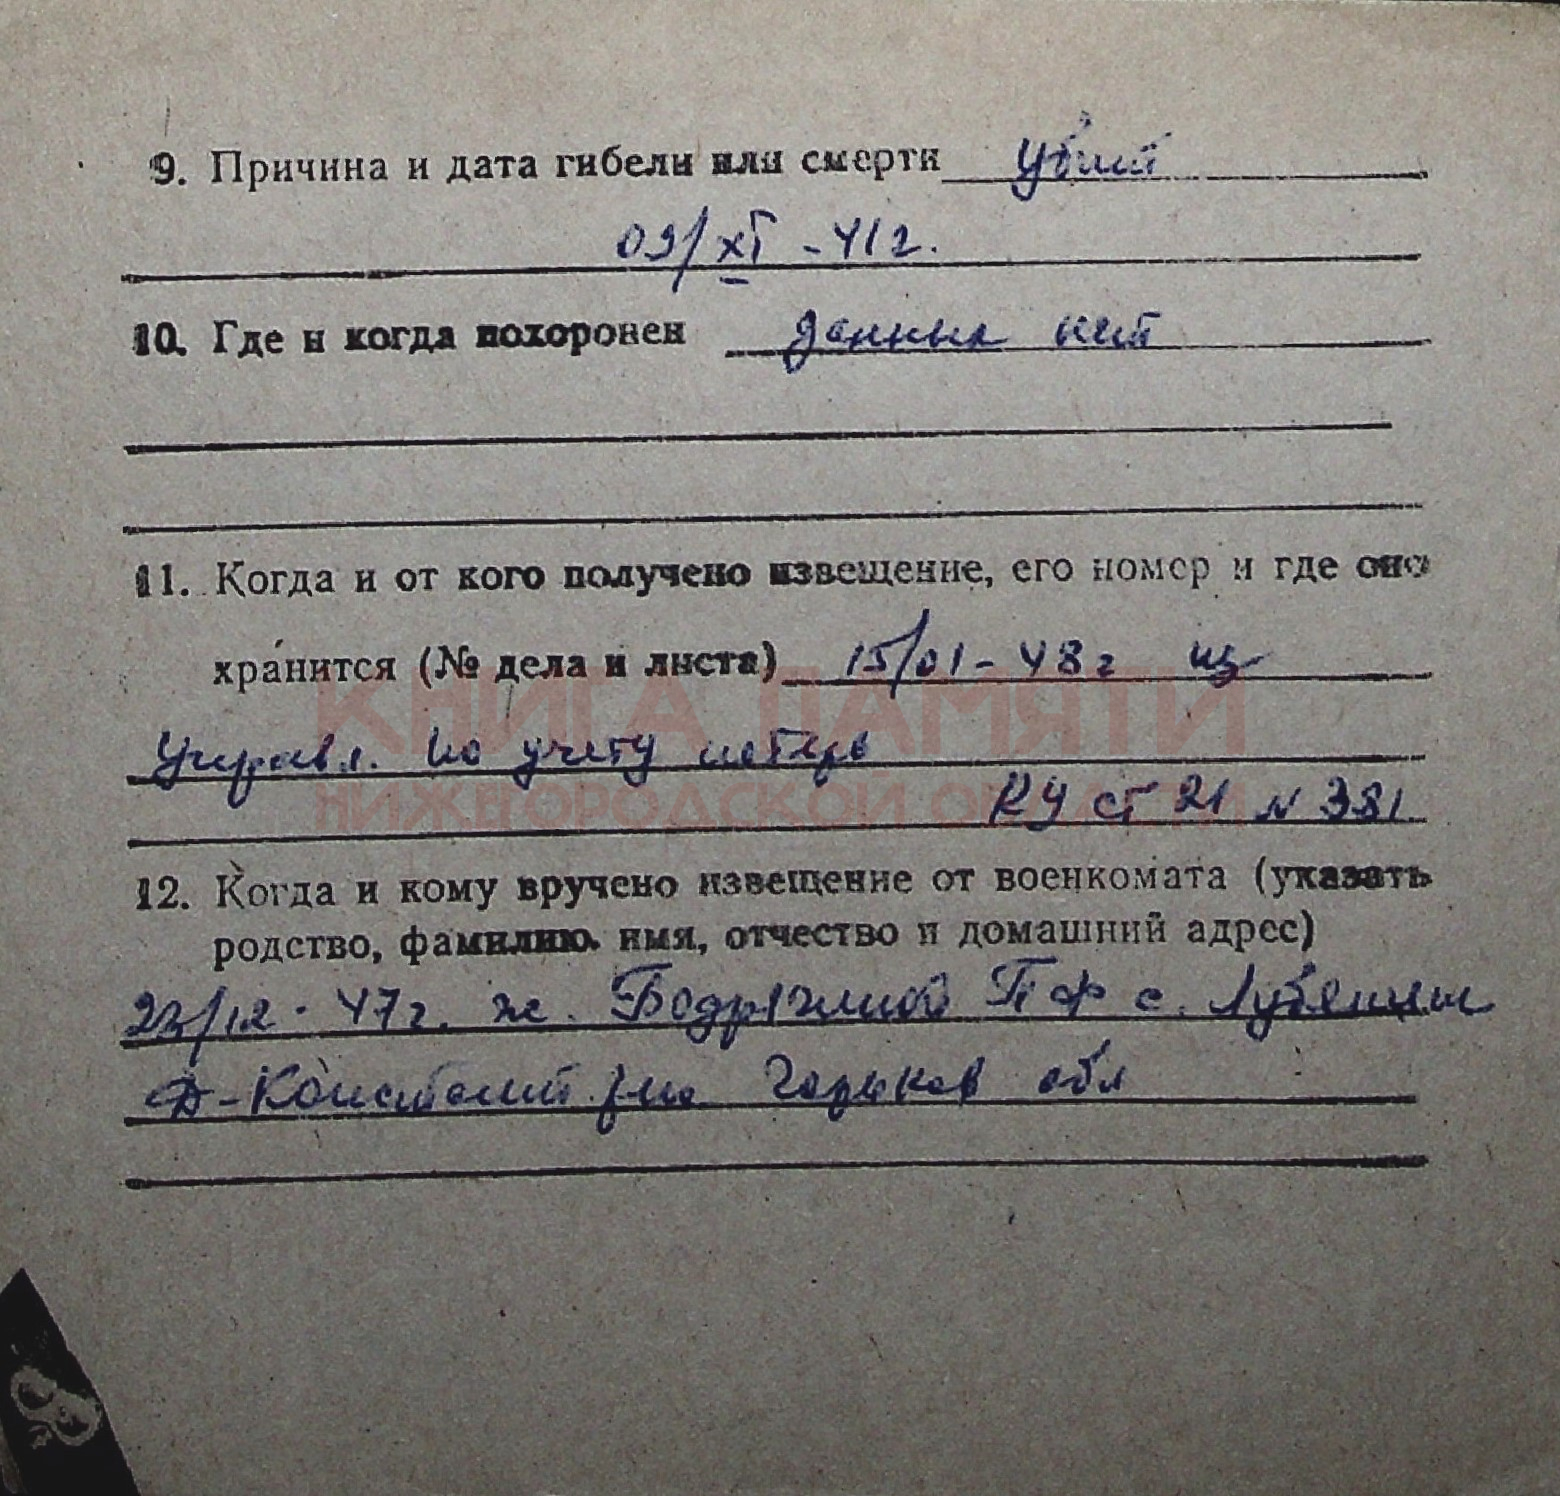 9. Причина и дата гибели или смерти убит
09/XI - 41г.
10. Где и когда похоронен данных нет
11. Когда и от кого получено извещение, его номер и где оно
хранится (№ дела и листа) 15/01 - 48г из
Управл. по учету потерь
КУ ст 21 N 381
КНИГА ПАМЯТИ
НИЖЕГОРОДСКОЙ ОБЛАСТИ
12. Когда и кому вручено извещение от военкомата (указать
родство, фамилию. имя, отчество и домашний адрес)
23/12 - 47г. ж. П Ф с.
Д-Констант. р-на Горьков обл